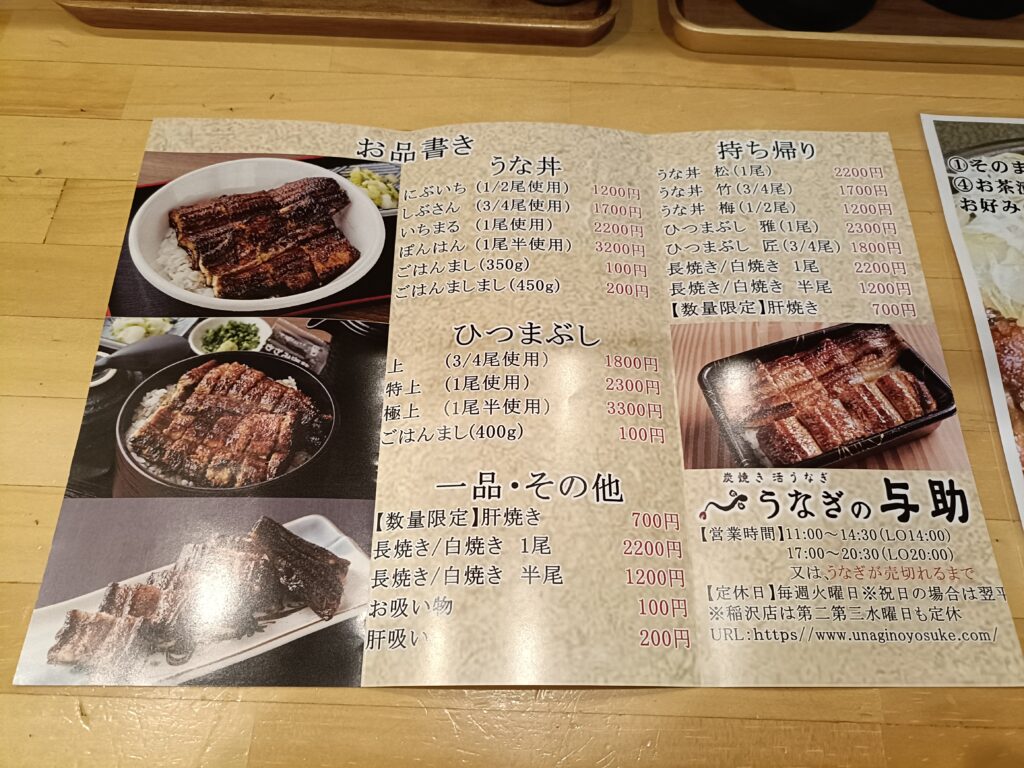 お品書き
うな丼
にぶいち (1/2尾使用) 1200円
しぶさん (3/4尾使用) 1700円
いちまる (1尾使用) 2200円
ぼんはん (1尾半使用) 3200円
ごはんまし(350g) 100円
ごはんましまし(450g) 200円
ひつまぶし
上 (3/4尾使用) 1800円
特上 (1尾使用) 2300円
極上 (1尾半使用) 3300円
ごはんまし(400g) 100円
一品・その他
【数量限定】肝焼き 700円
長焼き/白焼き 1尾 2200円
長焼き/白焼き 半尾 1200円
お吸い物 100円
肝吸い 200円
持ち帰り
うな丼 松(1尾) 2200円
うな丼 竹(3/4尾) 1700円
うな丼 梅(1/2尾) 1200円
ひつまぶし 雅(1尾) 2300円
ひつまぶし 匠(3/4尾) 1800円
長焼き/白焼き 1尾 2200円
長焼き/白焼き 半尾 1200円
【数量限定】肝焼き 700円
炭焼き活うなぎ
うなぎの与助
【営業時間】11:00〜14:30(LO14:00)
17:00〜20:30(LO20:00)
又は、うなぎが売切れるまで
【定休日】毎週火曜日※祝日の場合は翌平
※稲沢店は第二第三水曜日も定休
URL:https//www.unaginoyosuke.com/
①そのま
④お茶
お好み